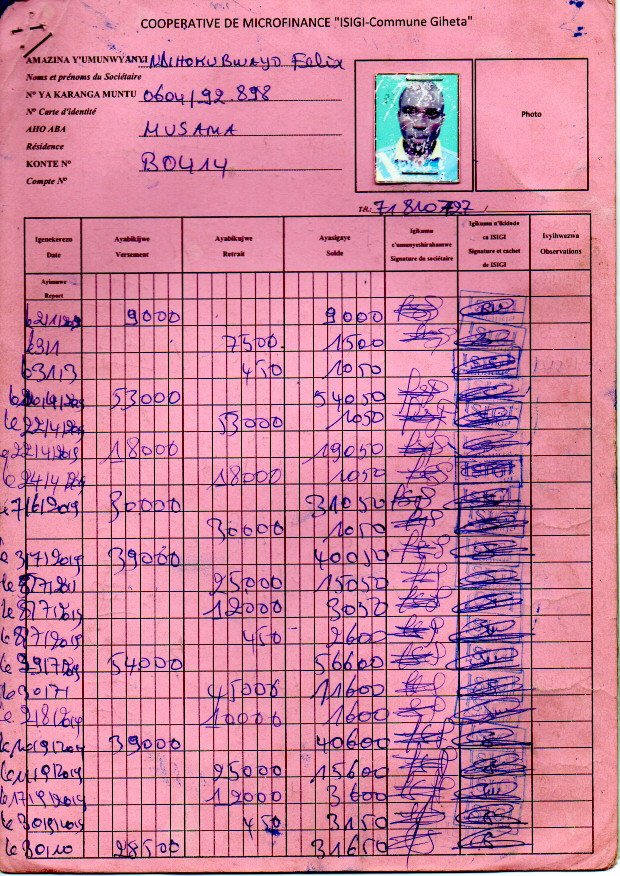 COOPERATIVE DE MICROFINANCE "ISIGI-Commune Giheta"
AMAZINA Y'UMUNWYANYI Felix
Noms et prénoms du Sociétaire
Nº YA KARANGA MUNTU 0604/92.898
Nº Carte d'identité
AHO ABA MUSAMA
Résidence
KONTE Nº B0414
Compte Nº
Photo
Tél.: 71 810 797
Igenekerezo Date
Ayabikijwe Versement
Ayabikujwe Retrait
Ayasigaye Solde
Igikumu c'umunyeshirahamwe Signature du sociétaire
Igikumu n'ikidode ca ISIGI Signature et cachet de ISIGI
Ivyihwezwa Observations
Ayimuwe Report
9000 9000
7500 1500
450 1050
53000 54050
Le 22/4/2019 53000 1050
22/4/2019 18000 19050
24/4/2019 18000 1050
7/6/2019 30000 31050
30000 1050
Le 3/7/2019 39000 40050
25000 15050
Le 8/7/2019 12000 3050
Le 8/7/2019 450 2600
54000 56600
45000 11600
Le 2/8/2019 10000 1600
39000 40600
25000 15600
Le 17/9/2019 12000 3600
450 3150
Le 30/10 28500 31650